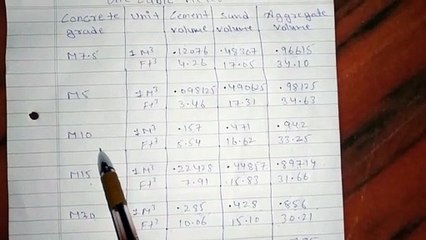 Concrete Unit Cement Sand Aggregate
grade volume volume volume
M7.5 1M³ .12076 .48307 .96615
Ft³ 4.26 17.05 34.10
M5 1M³ .098125 .490625 .98125
Ft³ 3.46 17.31 34.63
M10 1M³ .157 .471 .942
Ft³ 5.54 16.62 33.25
M15 1M³ .22428 .44857 .89714
Ft³ 7.91 15.83 31.66
M20 1M³ .285 .428 .856
Ft³ 10.06 15.10 30.21